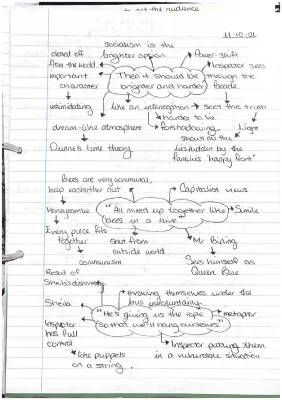 to the audience
11·10·21
socialism is the
closed off brighter option Power-shift
from the world Inspector sees
important Then it should be through the
character brighter and harder facade
intimidating like an interception sees the truth
harder to be
dream-like atmosphere Forshadowing Light
shown as the
Dunne's time theory
families "happy front"
Bees are very communal,
help eachother out Capitalist views
Honeycombe "All mixed up together like Simile
bees in a hive"
Every piece fits
together shut from Mr Birling
outside world
communism Sees himself as
Queen Bee
Result of
Sheila's dishonesty throwing themselves under the
bus involuntarily
Sheila "He's giving us the rope metaphor
Inspector so that we'll hang ourselves"
has full
control Inspector putting them
like puppets in a vulnerable situation
on a string